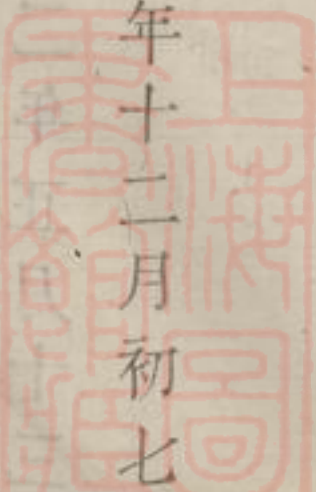 年十二月初七
上海圖
書館藏